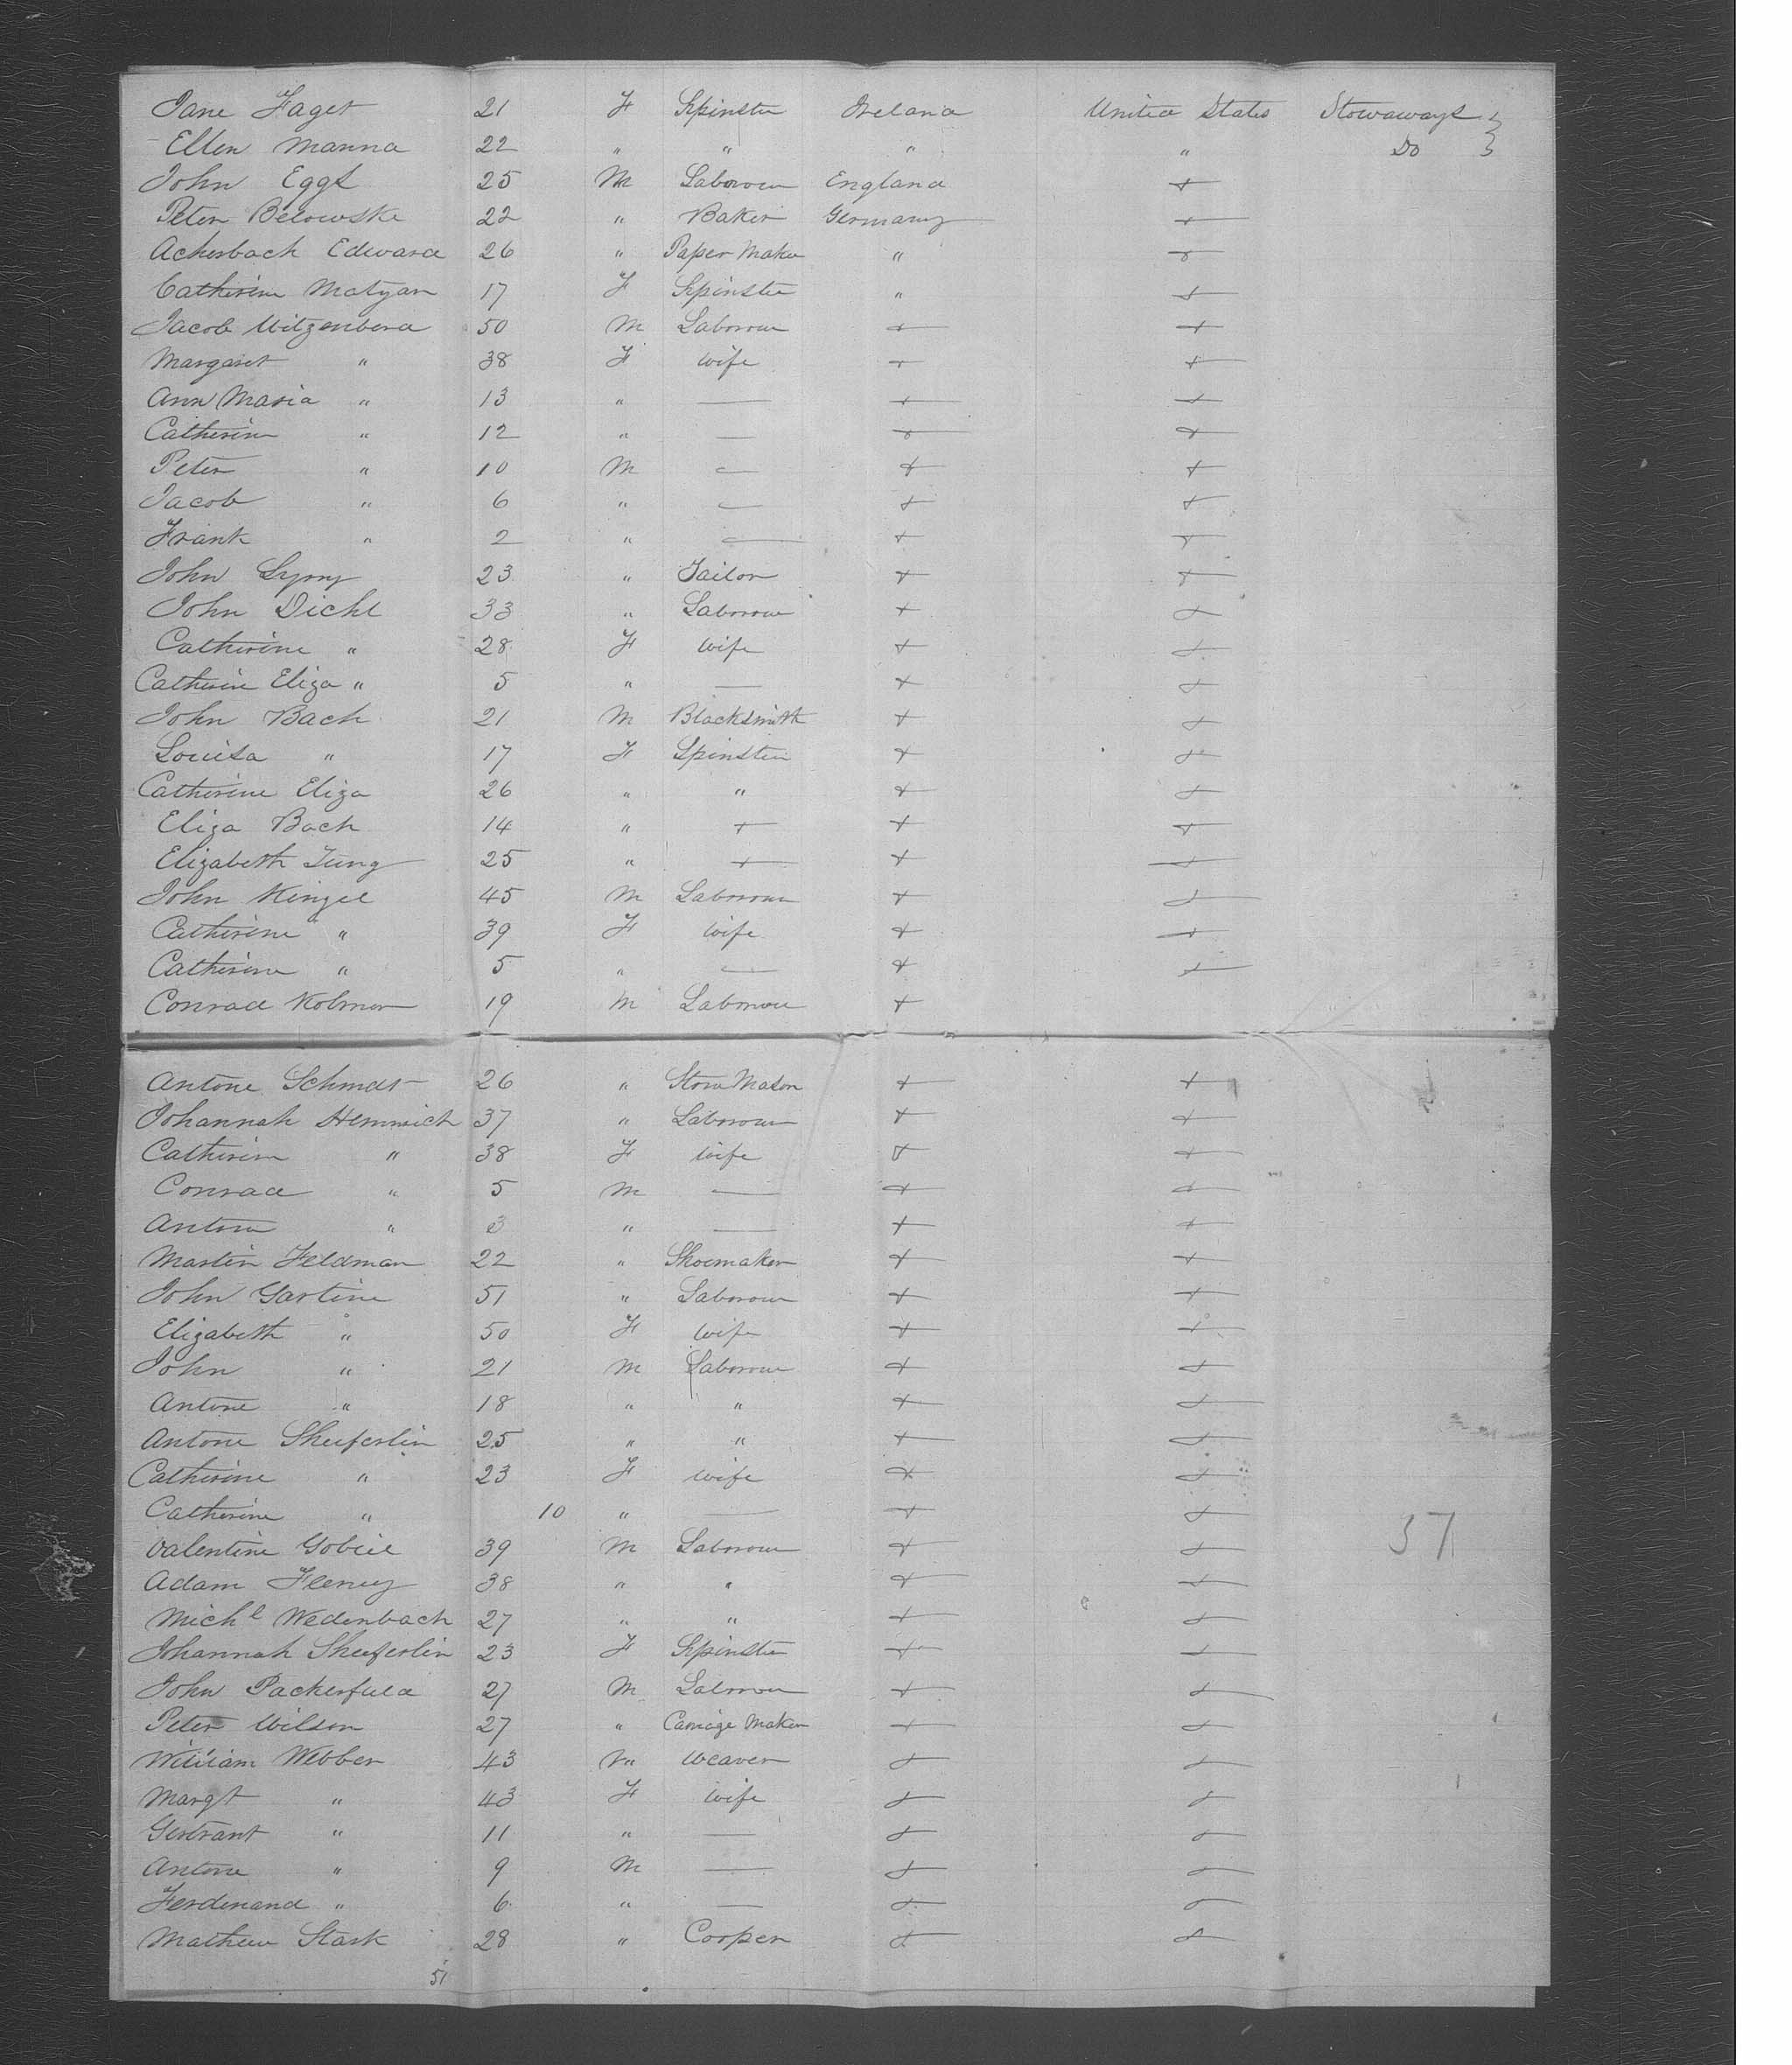 Jane Faget 21 F Spinster Ireland United States Stowaways
Ellen Manna 22 " " " " Do
John Eggs 25 M Labourer England +
Peter Belowske 22 " Baker Germany +
Ackerbach Edward 26 " Paper Maker " +
Catherine Matyan 17 F Spinster " +
Jacob Witzenberg 50 M Labourer + +
Margaret " 38 F Wife + +
Ann Maria " 13 " — + +
Catherine " 12 " — + +
Peter " 10 M — + +
Jacob " 6 " — + +
Frank " 2 " — + +
John 23 " Tailor + +
John Diehl 33 " Labourer + +
Catherine " 28 F Wife + +
Catherine Eliza " 5 " — + +
John Bach 21 M Blacksmith + +
Louisa " 17 F Spinster + +
Catherine Eliza 26 " " + +
Eliza Bach 14 " + + +
Elizabeth Jung 25 " + + +
John Kinzel 45 M Labourer + +
Catherine " 39 F Wife + +
Catherine " 5 " — + +
Conrad Kolmer 19 M Labourer +
Antone Schmdt 26 " Stone Mason + +
Johannah Hemmich 37 " Labourer + +
Catherine " 38 F Wife + +
Conrad " 5 M — + +
Antone " 3 " — + +
Martin Feldman 22 " Shoemaker + +
John Gartine 51 " Labourer + +
Elizabeth " 50 F Wife + +
John " 21 M Labourer + +
Antone " 18 " " + +
Antone Sheiferlin 25 " " + +
Catherine " 23 F Wife + +
Catherine " 10 " — + +
Valentine Gobiel 39 M Labourer + +
Adam Fleruy 38 " " + +
Michl Wedenbach 27 " " + +
Johannah Sheiferlin 23 F Spinster + +
John Packerfield 27 M Labourer + +
Peter Wilson 27 " Carriage Maker + +
William Webber 43 " Weaver + +
Margt " 43 F Wife + +
Gertrant " 11 " — + +
Antone " 9 M — + +
Ferdinand " 6 " — + +
Mathew Stark 28 " Cooper + +
51
37